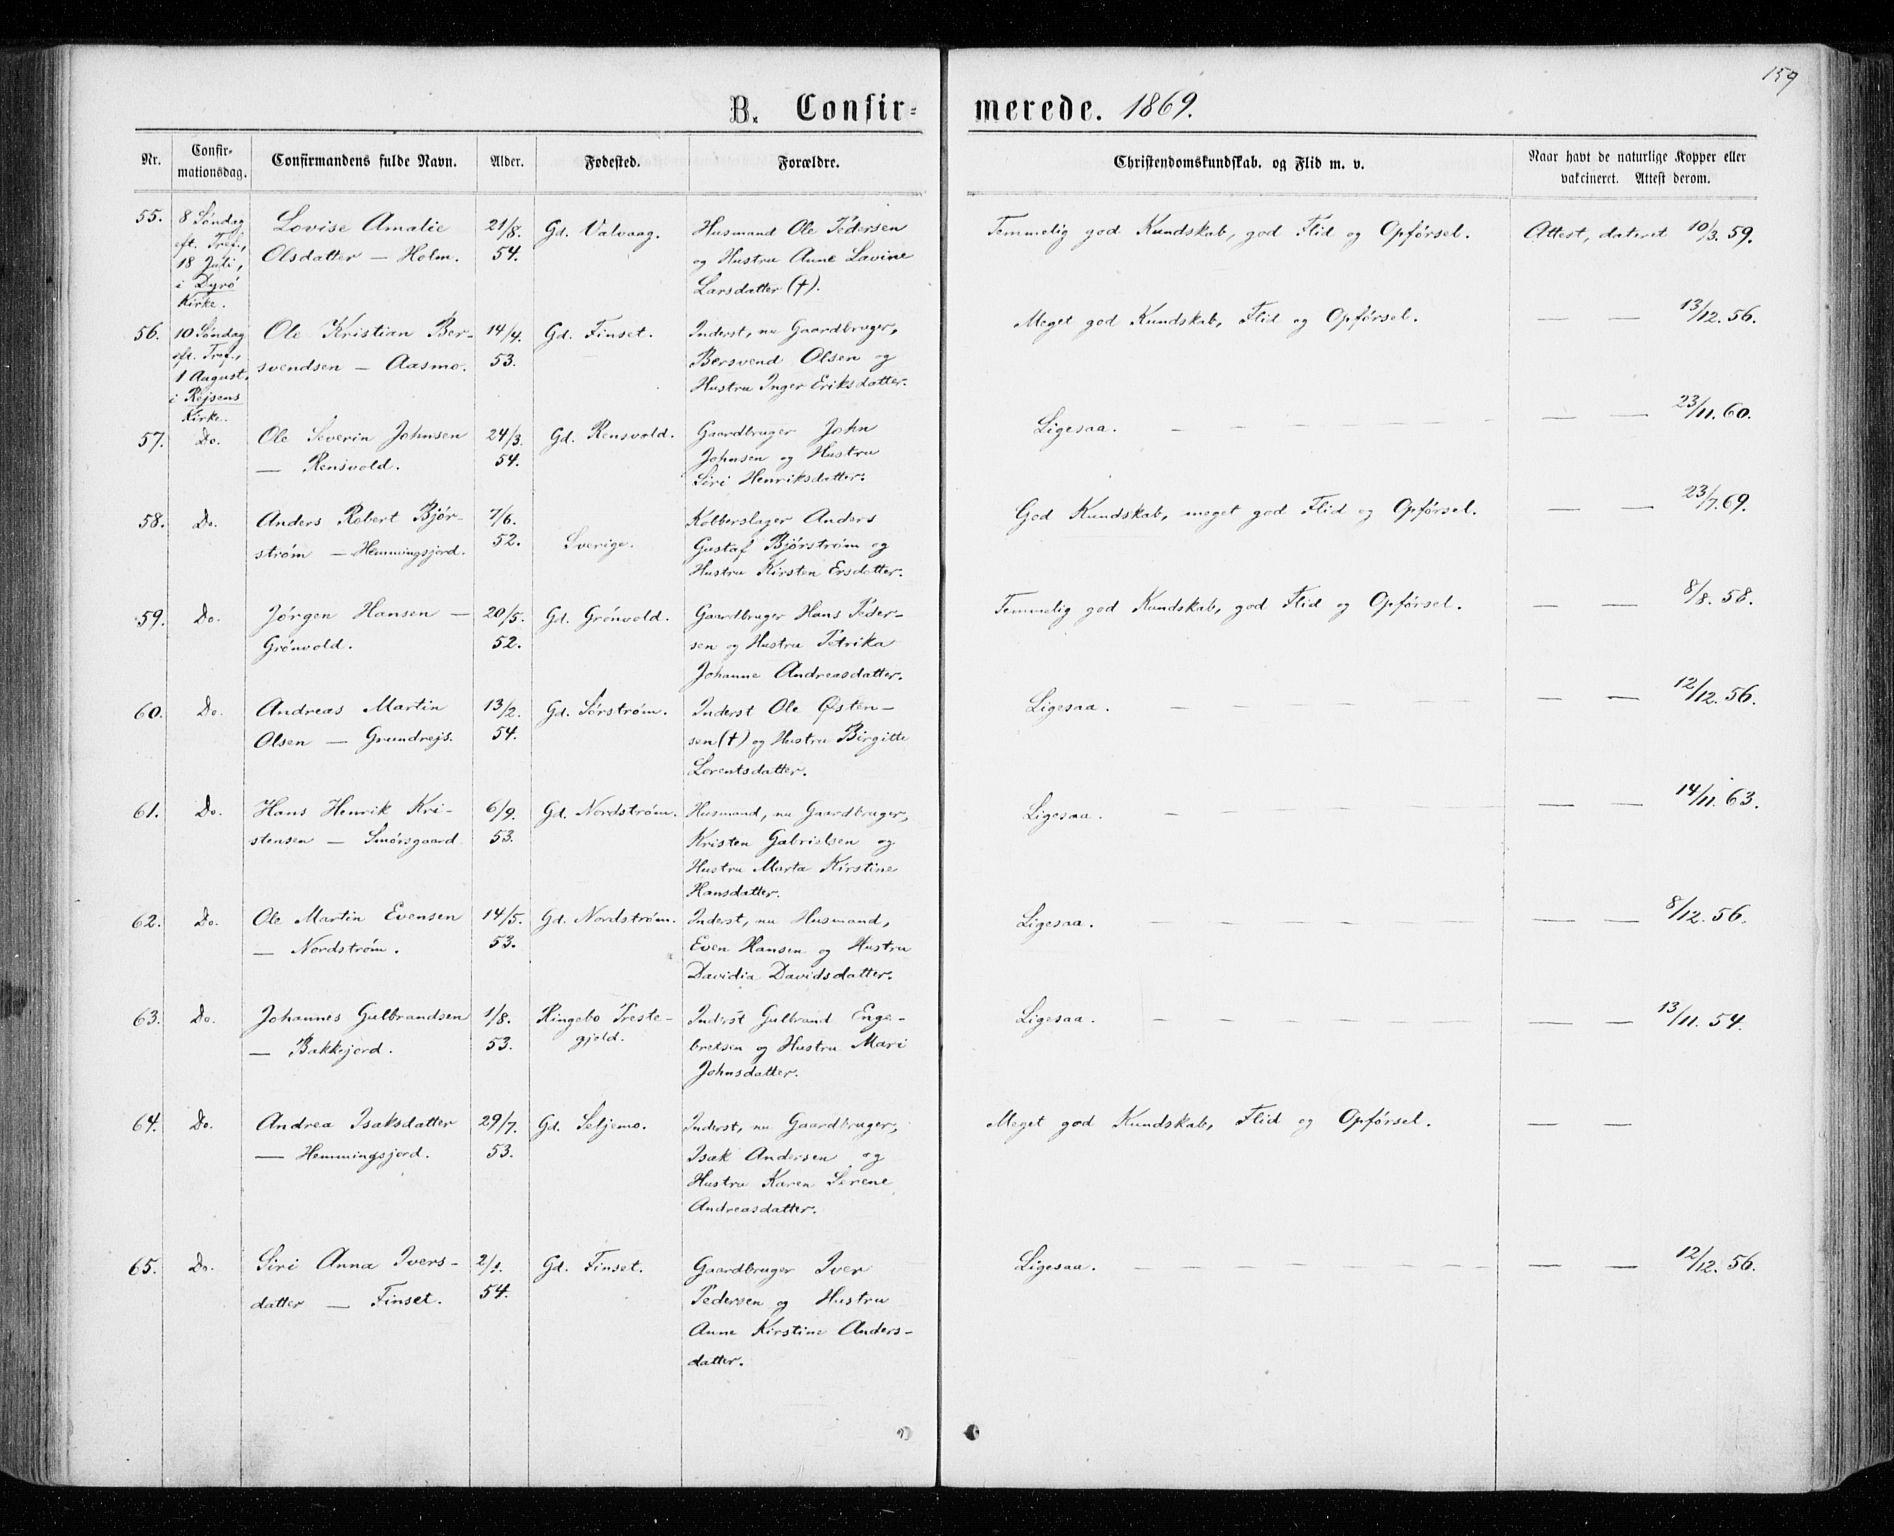 159
B. Confirmerede. 1869.
Nr.
Confirmationsdag.
Confirmandens fulde Navn.
Alder.
Fødested.
Forældre.
Christendomskundskab. og Flid m. v.
Naar havt de naturlige Kopper eller
vakcineret. Attest derom.
55.
8 Søndag
eft. Tref.,
18 Juli,
i Dyrö
Kirke.
Lovise Amalie
Olsdatter — Holm.
21/8.
54.
Gd. Valvaag.
Husmand Ole Pedersen
og Hustru Anne Lavine
Larsdatter (†).
Temmelig god Kundskab, god Flid og Opførsel.
Attest, dateret 10/3. 59.
56.
10 Søndag
eft. Tref.,
1 August,
i Rejsens
Kirke.
Ole Kristian Ber-
svendsen — Aasmo.
14/4.
53.
Gd. Finset.
Inderst, nu Gaardbruger,
Bersvend Olsen og
Hustru Inger Eriksdatter.
Meget god Kundskab, Flid og Opførsel.
— — 13/12. 56.
57.
Do.
Ole Severin Johnsen
— Rensvold.
24/3.
54.
Gd. Rensvold.
Gaardbruger John
Johnsen og Hustru
Siri Henriksdatter.
Ligesaa. — — — — — —
— — 23/11. 60.
58.
Do.
Anders Robert Bjør-
strøm — Hemmingsjord.
7/6.
52.
Sverige.
Kobberslager Anders
Gustaf Bjørstrøm og
Hustru Kirsten Ersdatter.
God Kundskab, meget god Flid og Opførsel.
— — 23/7. 69.
59.
Do.
Jørgen Hansen —
Grønvold.
20/5.
52.
Gd. Grønvold.
Gaardbruger Hans Peder-
sen og Hustru Petrika
Johanne Andreasdatter.
Temmelig god Kundskab, god Flid og Opførsel.
— — 8/8. 58.
60.
Do.
Andreas Martin
Olsen — Grundrejs.
13/2.
54.
Gd. Sørstrøm.
Inderst Ole Østen-
sen (†) og Hustru Birgitte
Lorentsdatter.
Ligesaa. — — — — — —
— — 12/12. 56.
61.
Do.
Hans Henrik Kri-
stensen — Smørsgaard.
6/9.
53.
Gd. Nordstrøm.
Husmand, nu Gaardbruger,
Kristen Gabrielsen og
Hustru Marta Kirstine
Hansdatter.
Ligesaa. — — — — — —
— — 14/11. 63.
62.
Do.
Ole Martin Evensen
— Nordstrøm.
14/5.
53.
Gd. Nordstrøm.
Inderst, nu Husmand,
Even Hansen og Hustru
Davidia Davidsdatter.
Ligesaa. — — — — — —
— — 8/12. 56.
63.
Do.
Johannes Gulbrandsen
— Bakkejord.
1/8.
53.
Ringebo Preste-
gjeld.
Inderst Gulbrand Enge-
bretsen og Hustru Mari
Johnsdatter.
Ligesaa. — — — — — —
— — 13/11. 54.
64.
Do.
Andrea Isaksdatter
— Hemmingsjord.
29/7.
53.
Gd. Seljemo.
Inderst, nu Gaardbruger,
Isak Andersen og
Hustru Karen Serene
Andreasdatter.
Meget god Kundskab, Flid og Opførsel.
— —
65.
Do.
Siri Anna Ivers-
datter — Finset.
2/1.
54.
Gd. Finset.
Gaardbruger Iver
Pedersen og Hustru
Anne Kirstine Anders-
datter.
Ligesaa. — — — — — —
— — 12/12. 56.